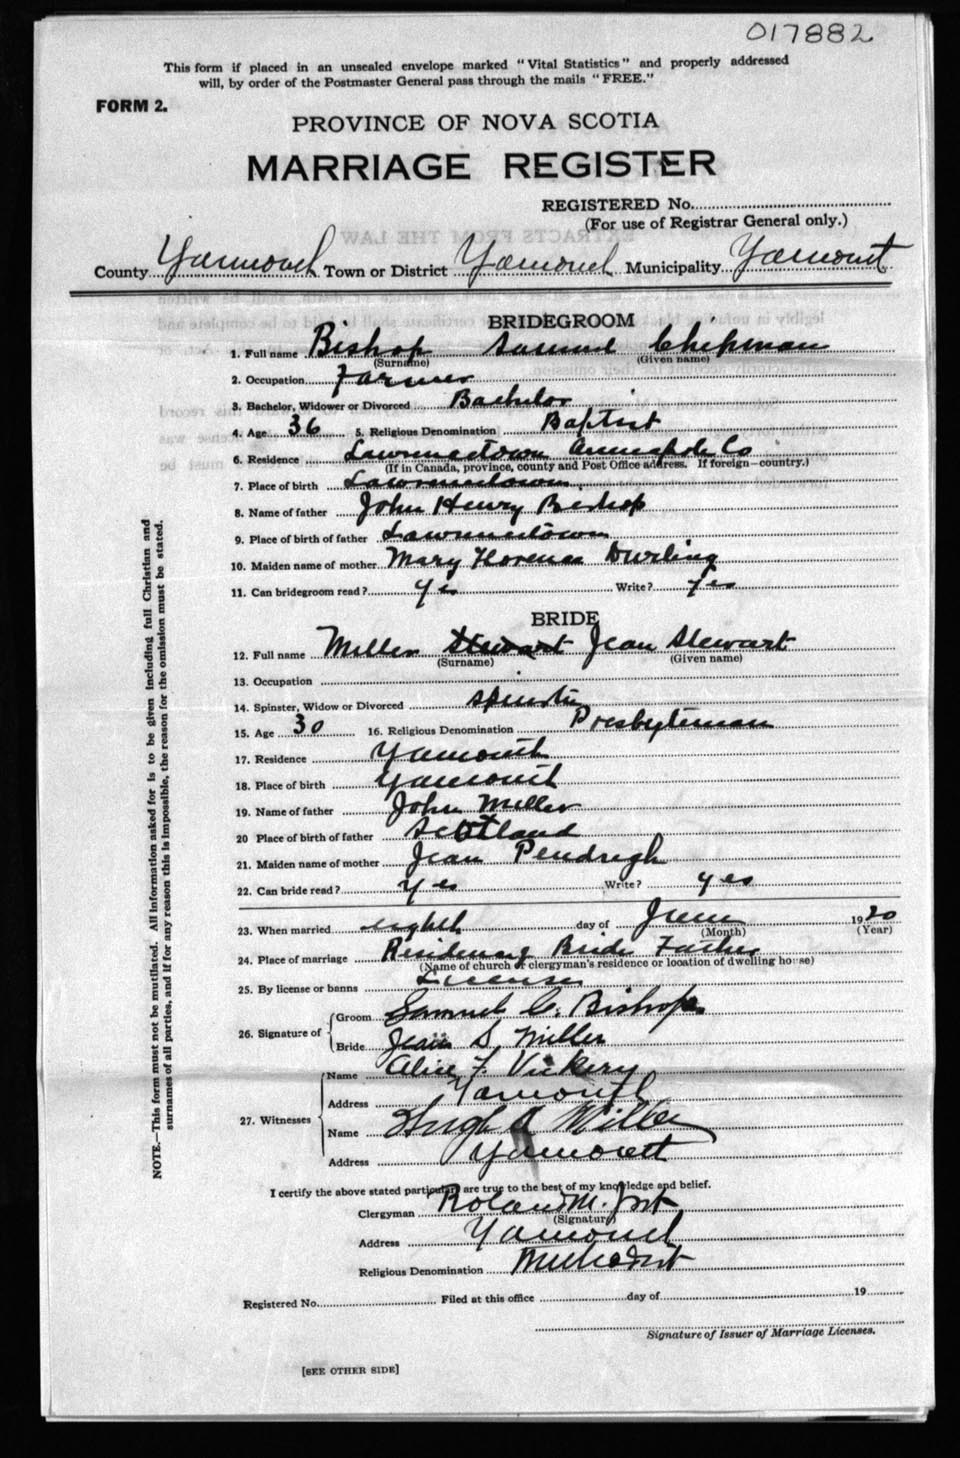 017882
This form if placed in an unsealed envelope marked "Vital Statistics" and properly addressed
will, by order of the Postmaster General pass through the mails "FREE."
FORM 2.
PROVINCE OF NOVA SCOTIA
MARRIAGE REGISTER
REGISTERED No.
(For use of Registrar General only.)
EXTRACTS FROM THE LAW
County Yarmouth Town or District Yarmouth Municipality Yarmouth
BRIDEGROOM
1. Full name Bishop Samuel Chipman
(Surname) (Given name)
2. Occupation Farmer
3. Bachelor, Widower or Divorced Bachelor
4. Age 36 5. Religious Denomination Baptist
6. Residence Lawrencetown Annapolis Co
(If in Canada, province, county and Post Office address. If foreign—country.)
7. Place of birth Lawrencetown
8. Name of father John Henry Bishop
9. Place of birth of father Lawrencetown
10. Maiden name of mother Mary Florence Durling
11. Can bridegroom read? Yes Write? Yes
BRIDE
12. Full name Miller Stewart Jean Stewart
(Surname) (Given name)
13. Occupation
14. Spinster, Widow or Divorced Spinster
15. Age 30 16. Religious Denomination Presbyterian
17. Residence Yarmouth
18. Place of birth Yarmouth
19. Name of father John Miller
20 Place of birth of father Scotland
21. Maiden name of mother Jean Pendrigh
22. Can bride read? Yes Write? Yes
23. When married eighth day of June 1920
(Month) (Year)
24. Place of marriage Residence of Brides Father
(Name of church or clergyman's residence or location of dwelling house)
25. By license or banns License
26. Signature of Groom Samuel C. Bishop
Bride Jean S. Miller
27. Witnesses Name Alice F. Vickery
Address Yarmouth
Name Hugh A Miller
Address Yarmouth
I certify the above stated particulars are true to the best of my knowledge and belief.
Clergyman Roland M. Jost
(Signature)
Address Yarmouth
Religious Denomination Methodist
Registered No. Filed at this office day of 19
Signature of Issuer of Marriage Licenses.
[SEE OTHER SIDE]
NOTE.—This form must not be mutilated. All information asked for is to be given including full Christian and
surnames of all parties, and if for any reason this is impossible, the reason for the omission must be stated.